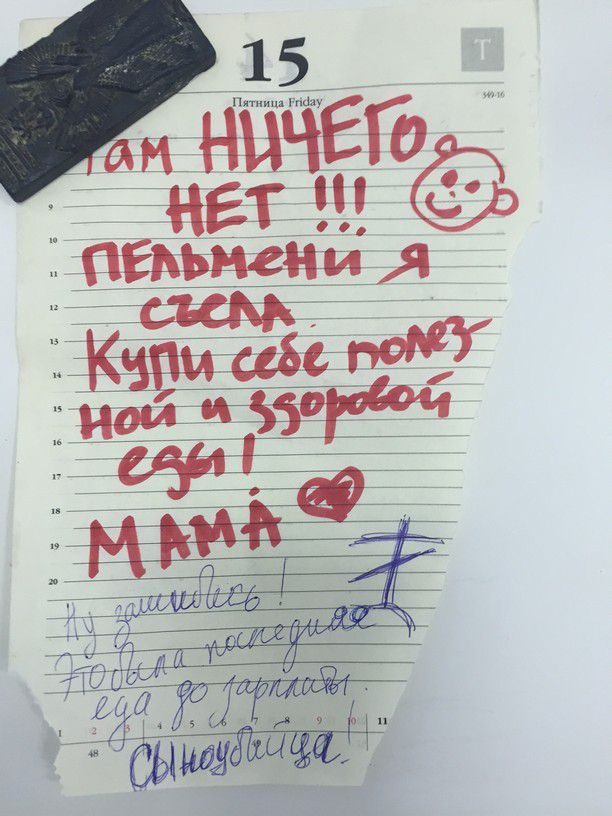 15
T
Пятница Friday
349-16
Там НИЧЕГО
НЕТ !!!
9
10
ПЕЛЬМЕНИ Я
11
СЪЕЛА
12
13
Купи себе полез-
14
ной и здоровой
15
еды!
16
17
18
МАМА
19
20
Ну зашибись!
Это была последняя
еда до зарплаты.
1 2 3 4 5 6 7 8 9 10 11
48
Сыноубийца!